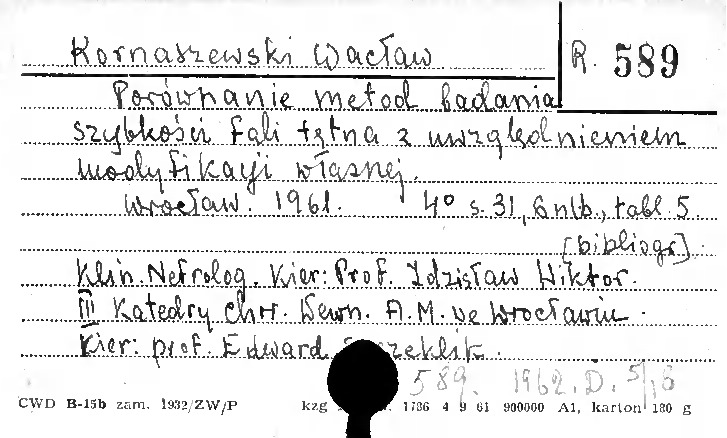 Kornaszewski Wacław
R. 589
Porównanie metod badania
szybkości fali tętna z uwzględnieniem
modyfikacji własnej.
Wrocław. 1961. 4° s. 31, 6 nlb., tabl. 5
[bibliogr.]
Klin. Nefrolog. Kier: Prof. Zdzisław Wiktor.
III Katedry Chor. Wewn. A.M. we Wrocławiu.
Kier: prof. Edward
589. 1962. D. 5/16
CWD B-15b zam. 1932/ZW/P kzg 1786 4 9 61 900000 A1, karton 180 g